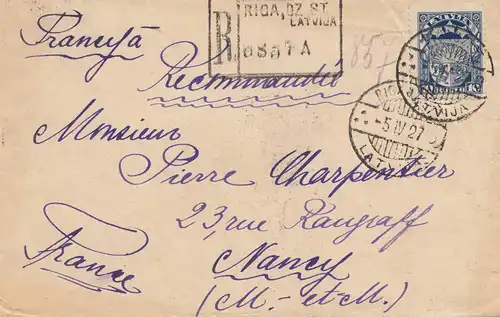 RIGA, DZ. ST.
LATVIJA
R
857
Francijā
Recommandée
RIGA
-5 IV 27
LATVIJA
Monsieur
Pierre Charpentier
23, rue Raugraff
Nancy
(M.-et-M.)
France